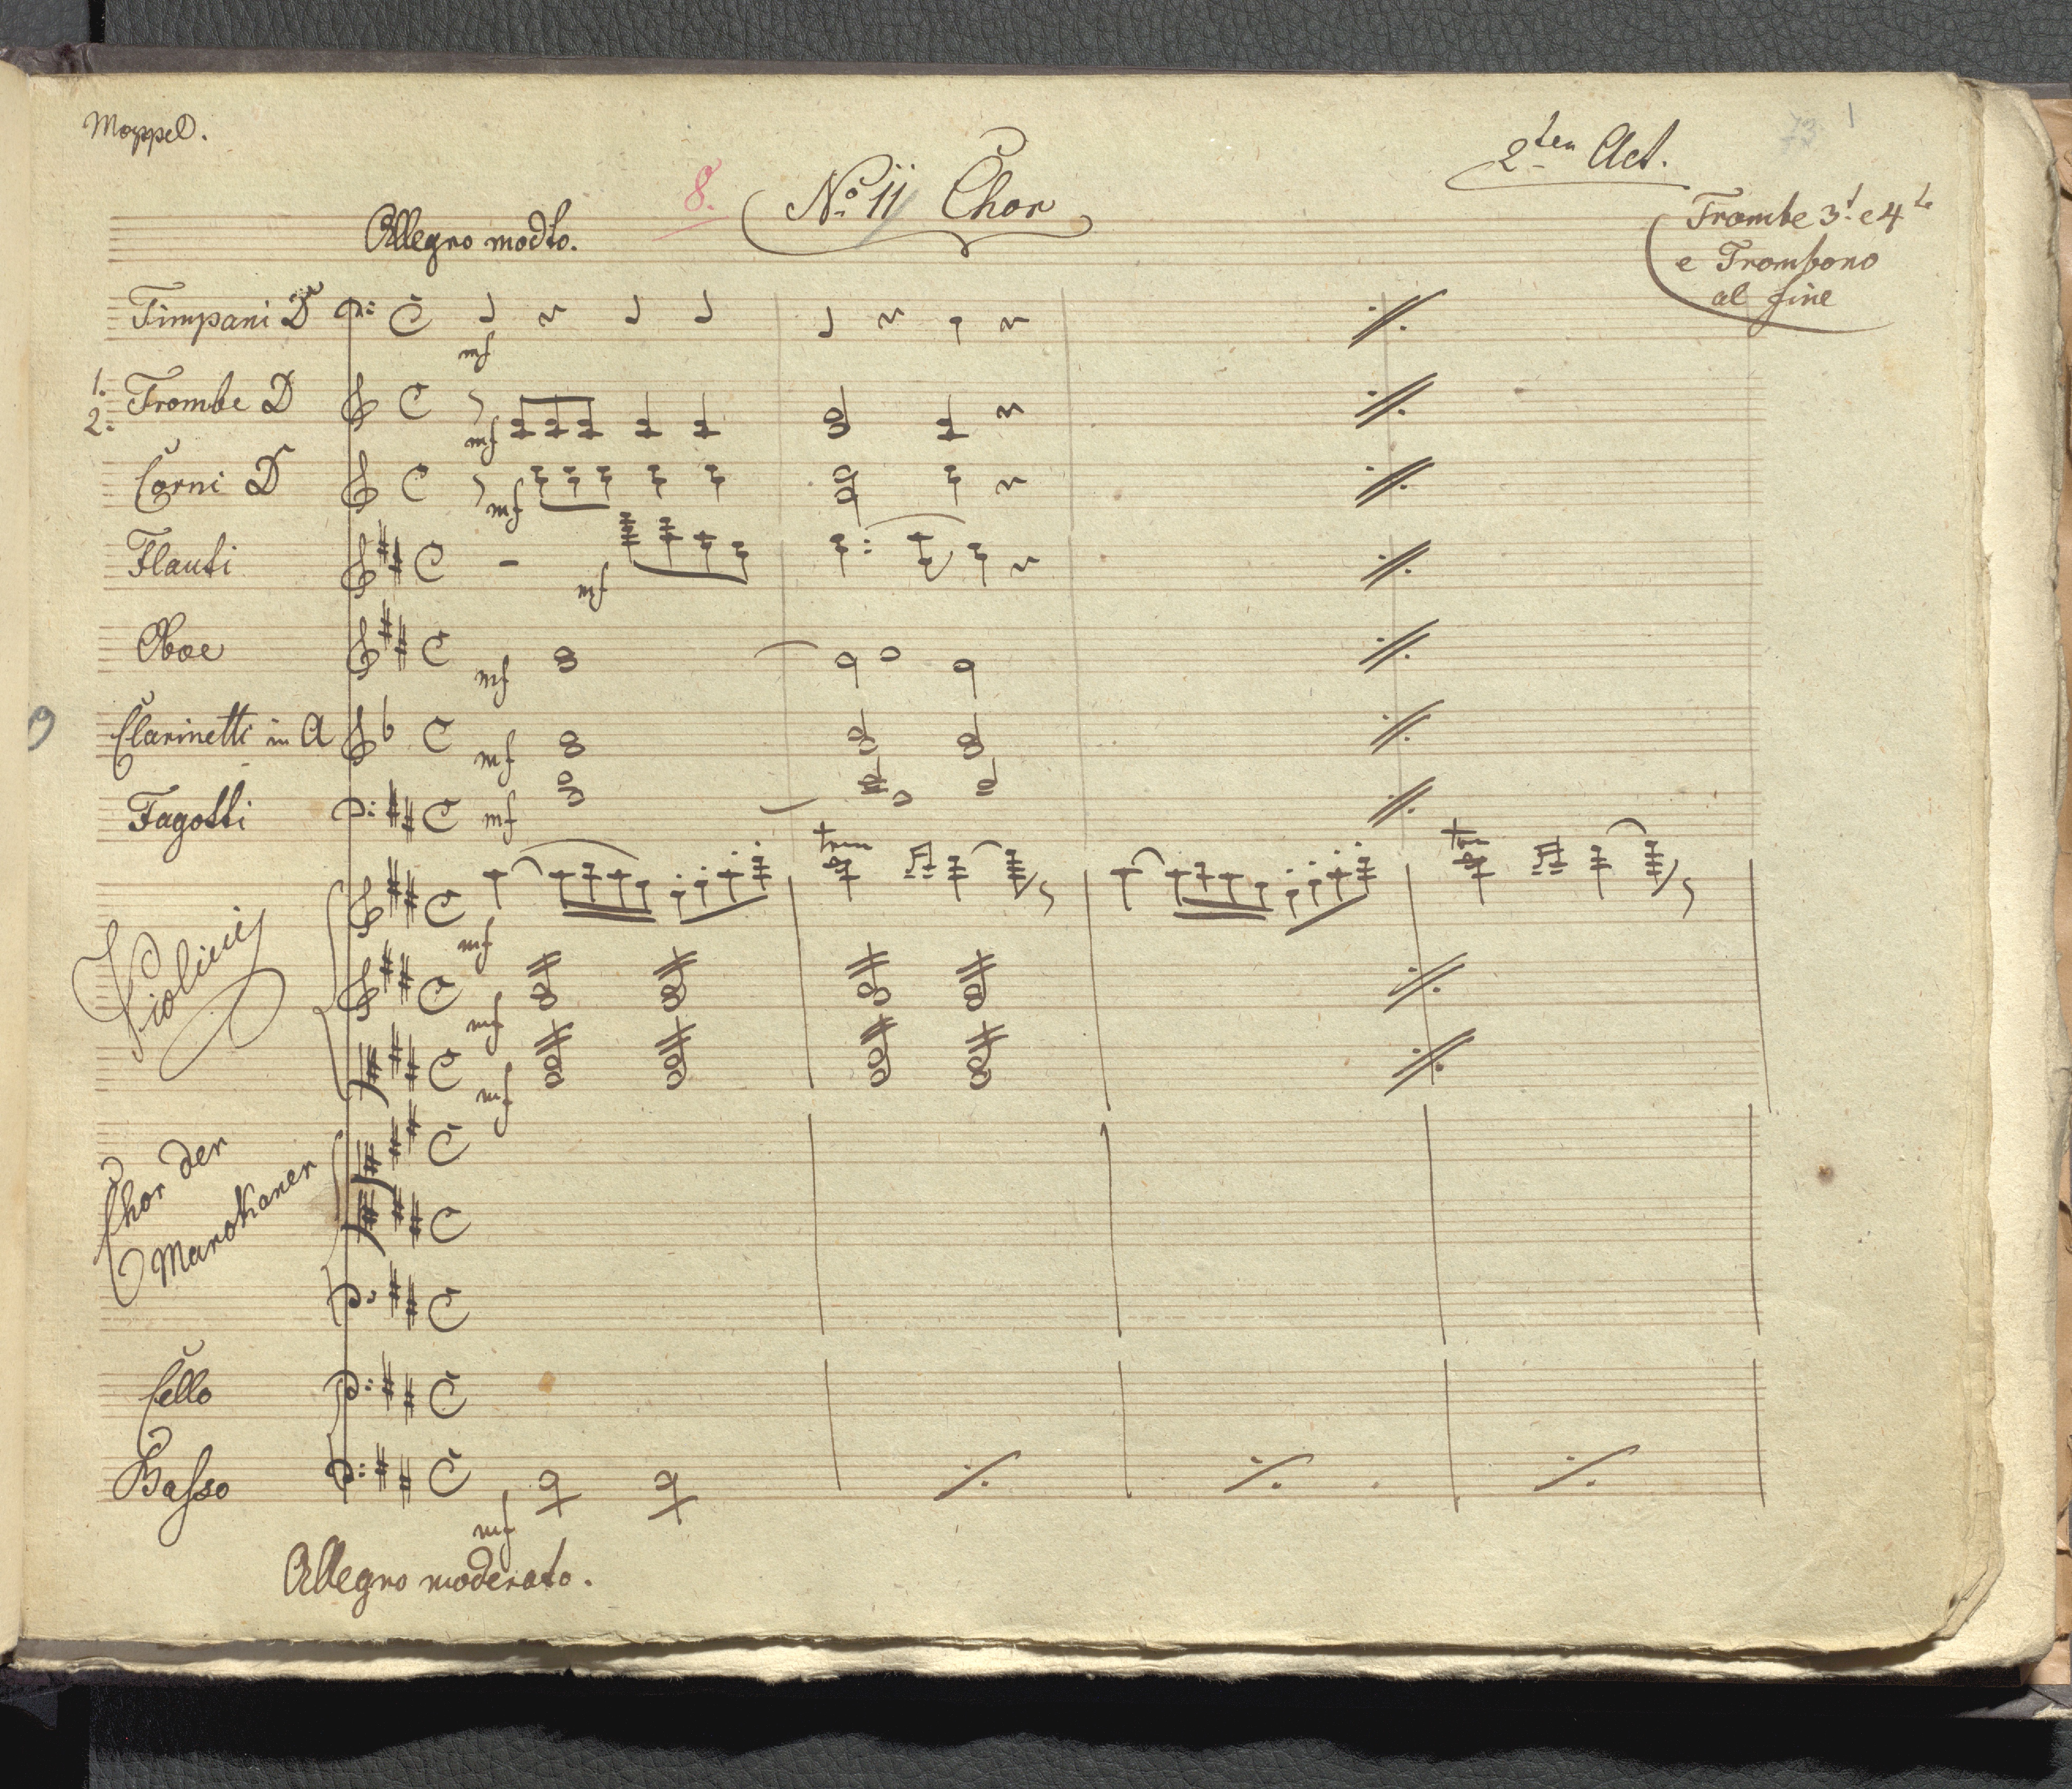 Moppel.
8.
No. 11 Chor
2ten Act.
Trombe 3t. e 4te
e Trombono
al fine
Allegro modto.
Timpani D
mf
1.
2.
Trombe D
mf
Corni D
mf
Flauti
mf
Oboe
mf
Clarinetti in A
mf
Fagotti
mf
Violini
mf
mf
mf
Chor der
Marokaner
Cello
Basso
mf
Allegro moderato.